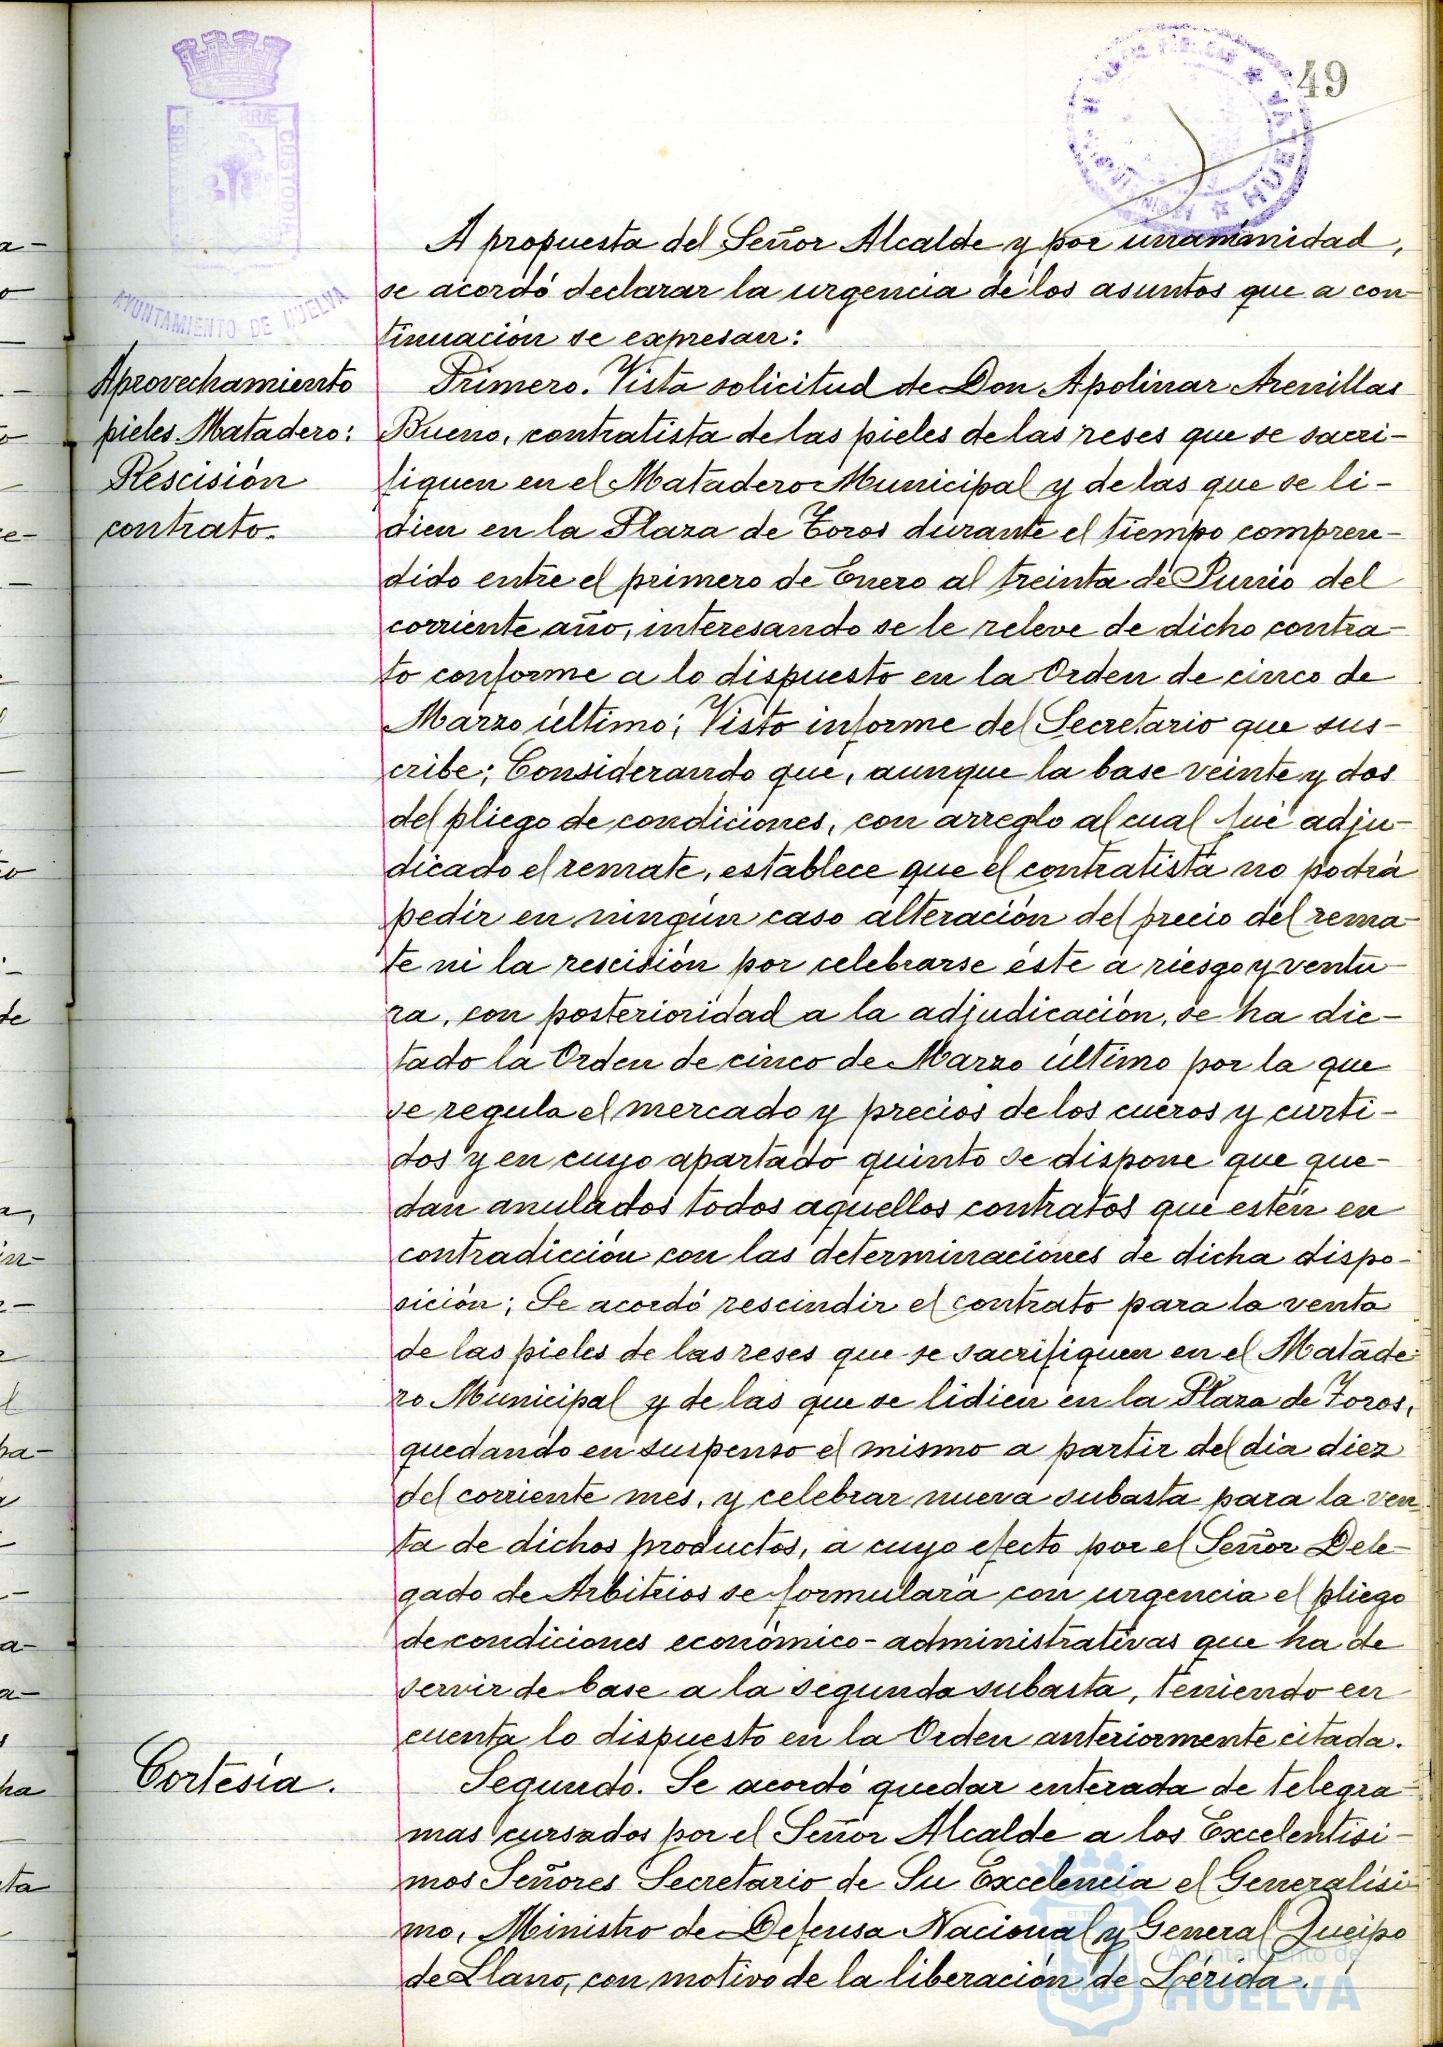 49
AYUNTAMIENTO DE HUELVA
A propuesta del Señor Alcalde y por unanimidad,
se acordó declarar la urgencia de los asuntos que a con-
tinuación se expresan:
Aprovechamiento
pieles Matadero:
Rescisión
contrato.
Primero. Vista solicitud de Don Apolinar Arenillas
Bueno, contratista de las pieles de las reses que se sacri-
fiquen en el Matadero Municipal y de las que se li-
dien en la Plaza de Toros durante el tiempo compren-
dido entre el primero de Enero al treinta de Junio del
corriente año, interesando se le releve de dicho contra-
to conforme a lo dispuesto en la Orden de cinco de
Marzo último; Visto informe del Secretario que sus-
cribe; Considerando que, aunque la base veinte y dos
del pliego de condiciones, con arreglo al cual fué adju-
dicado el remate, establece que el contratista no podrá
pedir en ningún caso alteración del precio del rema-
te ni la rescisión por celebrarse éste a riesgo y ventu-
ra, con posterioridad a la adjudicación, se ha dic-
tado la Orden de cinco de Marzo último por la que
se regula el mercado y precios de los cueros y curti-
dos y en cuyo apartado quinto se dispone que que-
dan anulados todos aquellos contratos que estén en
contradicción con las determinaciones de dicha dispo-
sición; Se acordó rescindir el contrato para la venta
de las pieles de las reses que se sacrifiquen en el Matade-
ro Municipal y de las que se lidien en la Plaza de Toros,
quedando en suspenso el mismo a partir del dia diez
del corriente mes, y celebrar nueva subasta para la ven-
ta de dichos productos, a cuyo efecto por el Señor Dele-
gado de Arbitrios se formulará con urgencia el pliego
de condiciones económico-administrativas que ha de
servir de base a la segunda subasta, teniendo en
cuenta lo dispuesto en la Orden anteriormente citada.
Cortesía.
Segundo. Se acordó quedar enterada de telegra-
mas cursados por el Señor Alcalde a los Excelentísi-
mos Señores Secretario de Su Excelencia el Generalísi-
mo, Ministro de Defensa Nacional y General Queipo
de Llano, con motivo de la liberación de Lérida.
Ayuntamiento de
HUELVA